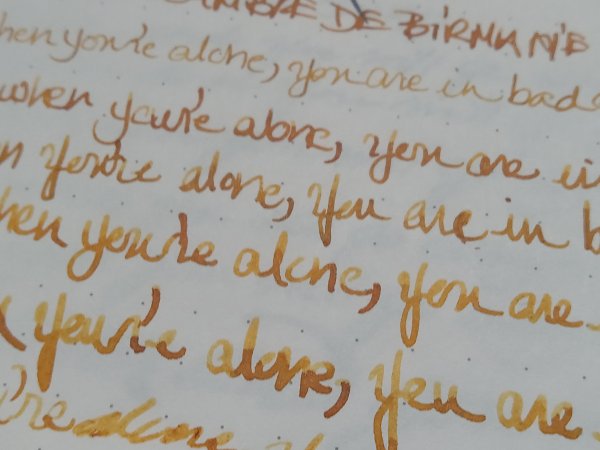 AMBRE DE BiRMANIE
hen you're alone, you are in bad
when you're alone, you are in
n you're alone, you are in b
hen you're alone, you are
you're alone, you are
're alone